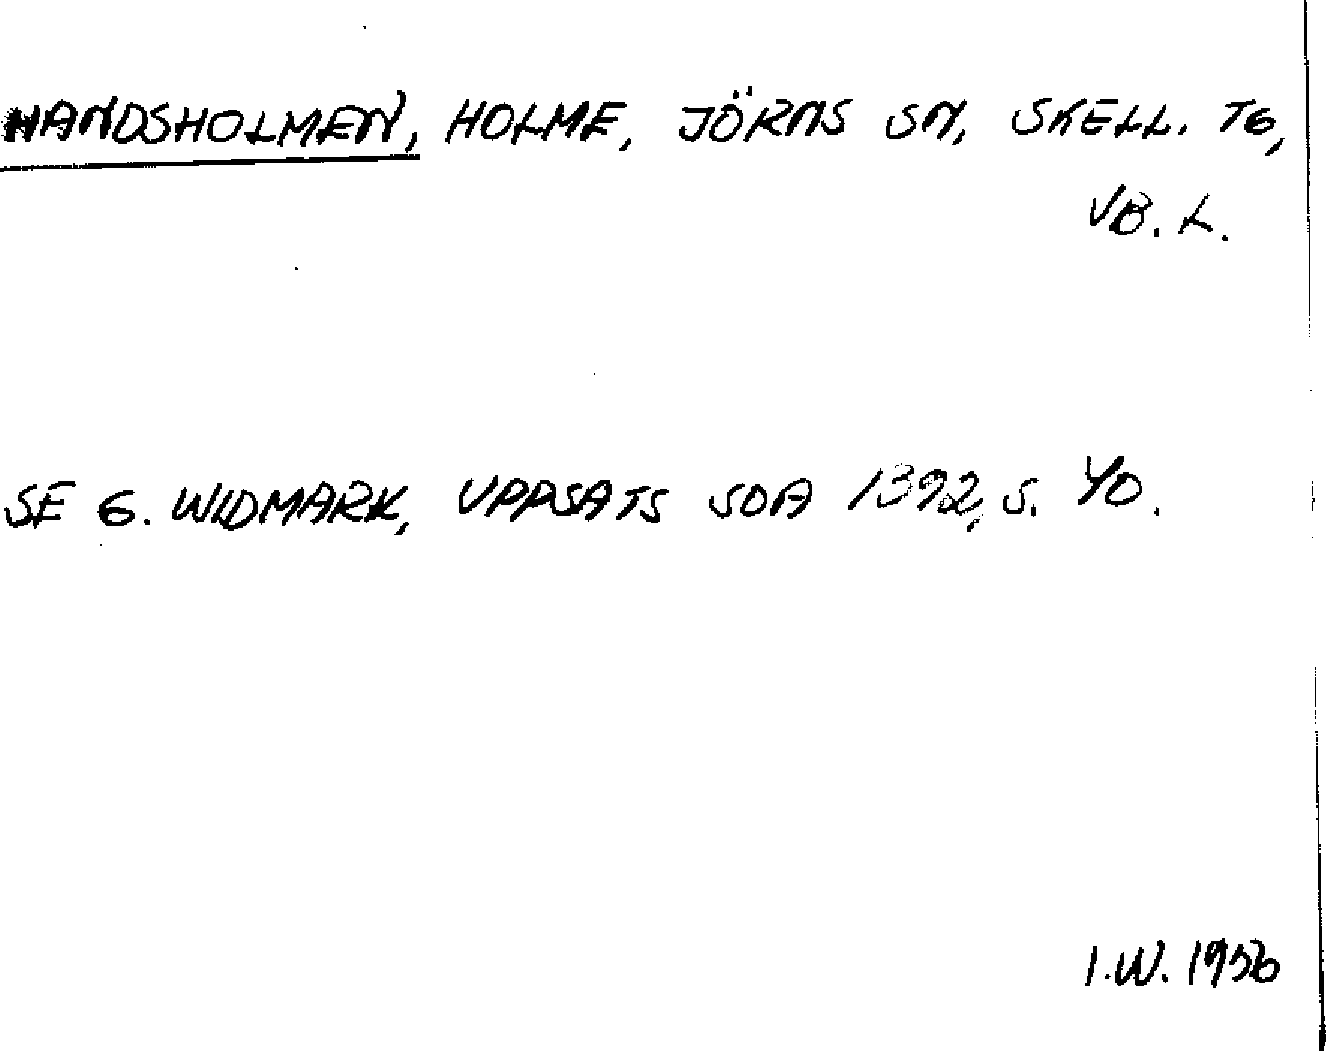 HANDSHOLMEN, HOLME, JÖRNS SN, SKELL. TG,
VB. L.
SE G. WIDMARK, UPPSATS SOA 1392, S. 40.
I.W. 1956